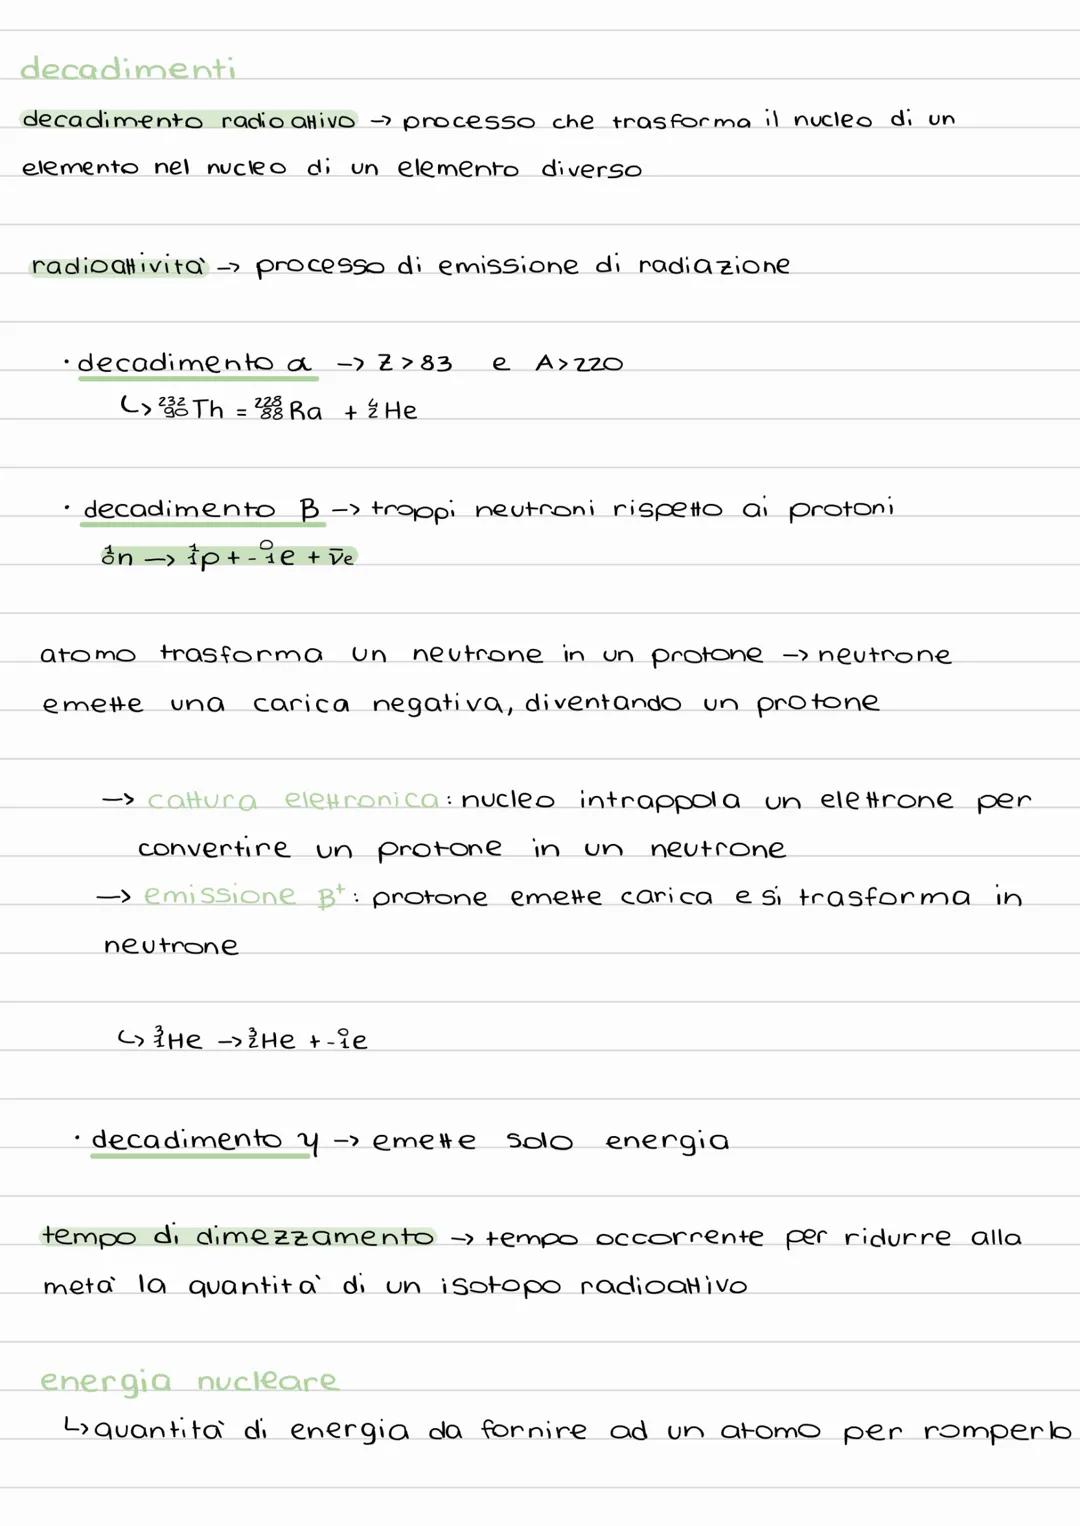 decadimenti
decadimento radioattivo -> processo che trasforma il nucleo di un
elemento nel nucleo di un elemento diverso
radioattività -> processo di emissione di radiazione
· decadimento α -> Z > 83 e A > 220
↳ ²³²₉₀Th = ²²⁸₈₈Ra + ⁴₂He
· decadimento β -> troppi neutroni rispetto ai protoni
¹₀n -> ¹₁p + ₋⁰₁e + ν̅e
atomo trasforma un neutrone in un protone -> neutrone
emette una carica negativa, diventando un protone
-> cattura elettronica: nucleo intrappola un elettrone per
convertire un protone in un neutrone
-> emissione β⁺: protone emette carica e si trasforma in
neutrone
↳ ³₁He -> ³₂He + ₋⁰₁e
· decadimento γ -> emette solo energia
tempo di dimezzamento -> tempo occorrente per ridurre alla
metà la quantità di un isotopo radioattivo
energia nucleare
↳ quantità di energia da fornire ad un atomo per romperlo